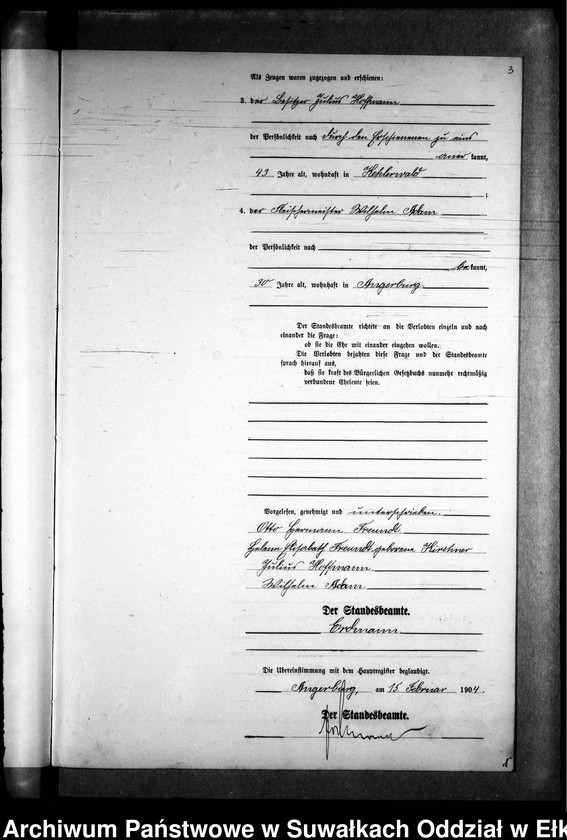 3
Als Zeugen waren zugezogen und erschienen:
3. der Besitzer Julius Hoffmann
der Persönlichkeit nach durch den Erschienenen zu eins
aner kannt,
43 Jahre alt, wohnhaft in Kehlerwald
;
4. der Fleischermeister Wilhelm Adam
der Persönlichkeit nach
be kannt,
30 Jahre alt, wohnhaft in Angerburg
Der Standesbeamte richtete an die Verlobten einzeln und nach
einander die Frage:
ob sie die Ehe mit einander eingehen wollen.
Die Verlobten bejahten diese Frage und der Standesbeamte
sprach hierauf aus,
daß sie kraft des Bürgerlichen Gesetzbuchs nunmehr rechtmäßig
verbundene Eheleute seien.
Vorgelesen, genehmigt und unterschrieben.
Otto Hermann Freundt
Helene Elisabeth Freundt geborene Kirschner
Julius Hoffmann
Wilhelm Adam.
Der Standesbeamte.
Erdmann.
Die Übereinstimmung mit dem Hauptregister beglaubigt.
Angerburg, am 15. Februar 1904.
Der Standesbeamte.
Archiwum Państwowe w Suwałkach Oddział w Ełk